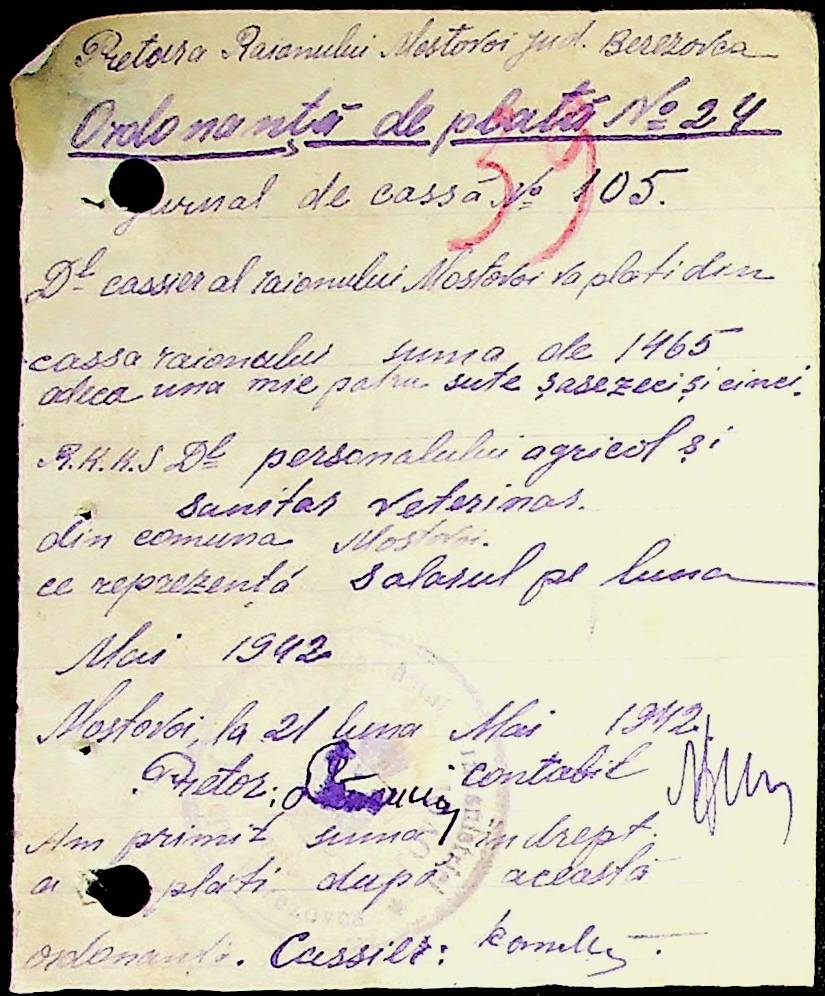 Pretura Raionului Mostovoi jud. Berezovca
Ordonanță de plată No 24
39
Jurnal de cassă No 105.
Dl cassier al raionului Mostovoi va plati din
cassa raionului suma de 1465
adica una mie patru sute șasezeci și cinci.
R.K.K.S Dl personalului agricol și
sanitar veterinar.
din comuna Mostovoi.
ce reprezență salarul pe luna
Mai 1942
Mostovoi, la 21 luna Mai 1942.
Pretor: contabil
Am primit suma în drept.
a plăti după această
ordonanță. Cassier: